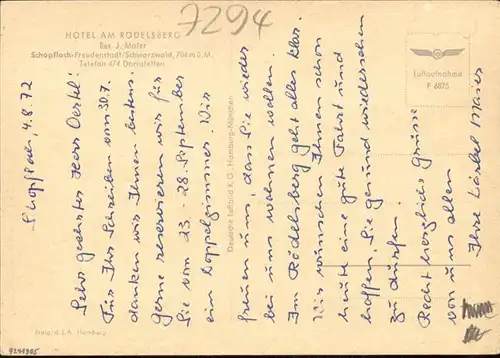 7294
HOTEL AM RÖDELSBERG
Bes. J. Maier
Schopfloch-Freudenstadt/Schwarzwald, 704 m ü.M.
Telefon 474 Dornstetten
Luftaufnahme
P 6825
Schopfloch, 4.8.72
Sehr geehrter Herr Oertel!
Für Ihr Schreiben vom 30.7.
danken wir Ihnen bestens.
Gerne reservieren wir für
Sie vom 23. - 28. September
ein Doppelzimmer. Wir
freuen uns, dass Sie wieder
bei uns wohnen wollen.
Im Rödelsberg geht alles klar.
Wir wünschen Ihnen schon
heute eine gute Fahrt und
hoffen, Sie gesund wiedersehen
zu dürfen.
Recht herzliche Grüsse
von uns allen
Ihre Bärbel Maier
Deutsche Luftbild K.G. Hamburg-München
Freig. d. L.A. Hamburg
9241985